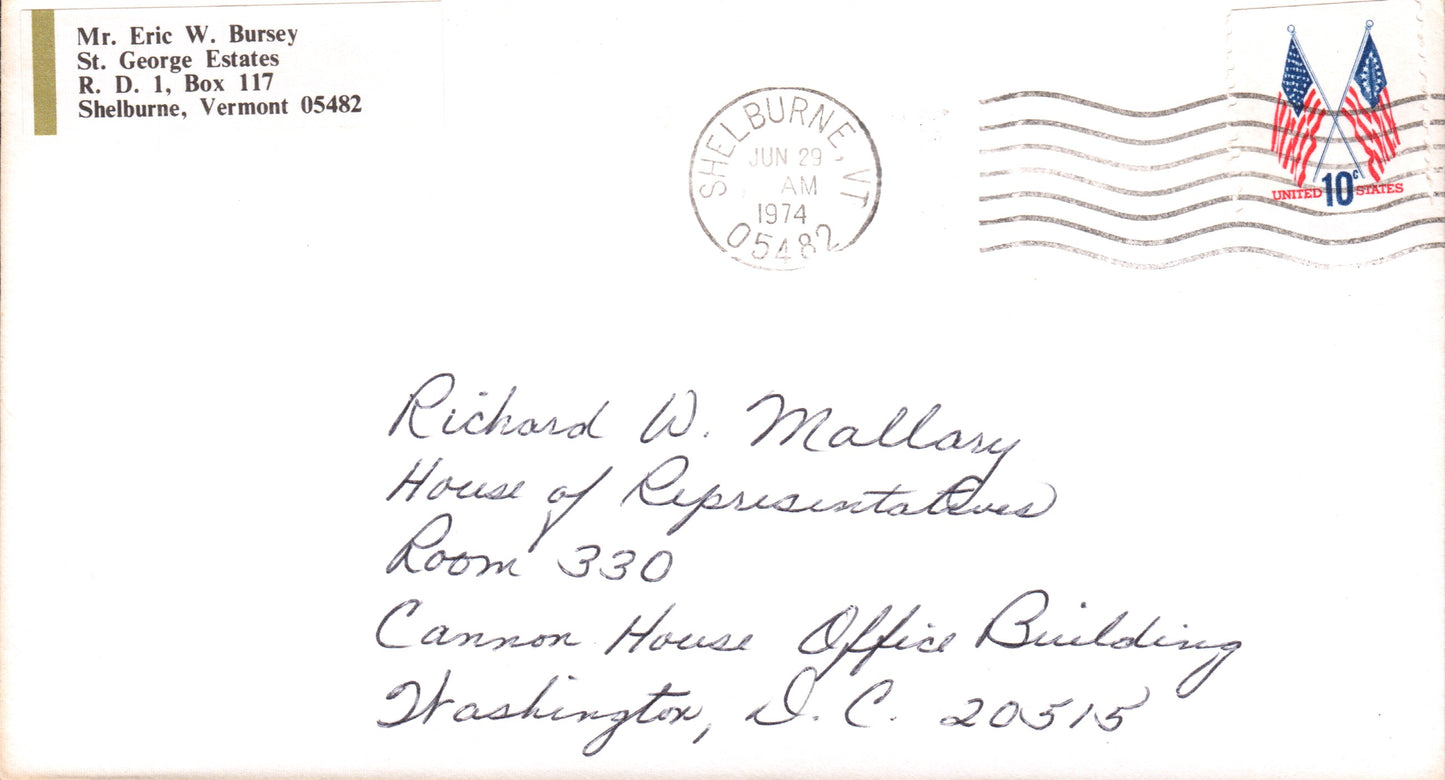 Mr. Eric W. Bursey
St. George Estates
R. D. 1, Box 117
Shelburne, Vermont 05482
SHELBURNE, VT
JUN 29
AM
1974
05482
UNITED 10c STATES
Richard W. Mallary
House of Representatives
Room 330
Cannon House Office Building
Washington, D. C. 20515